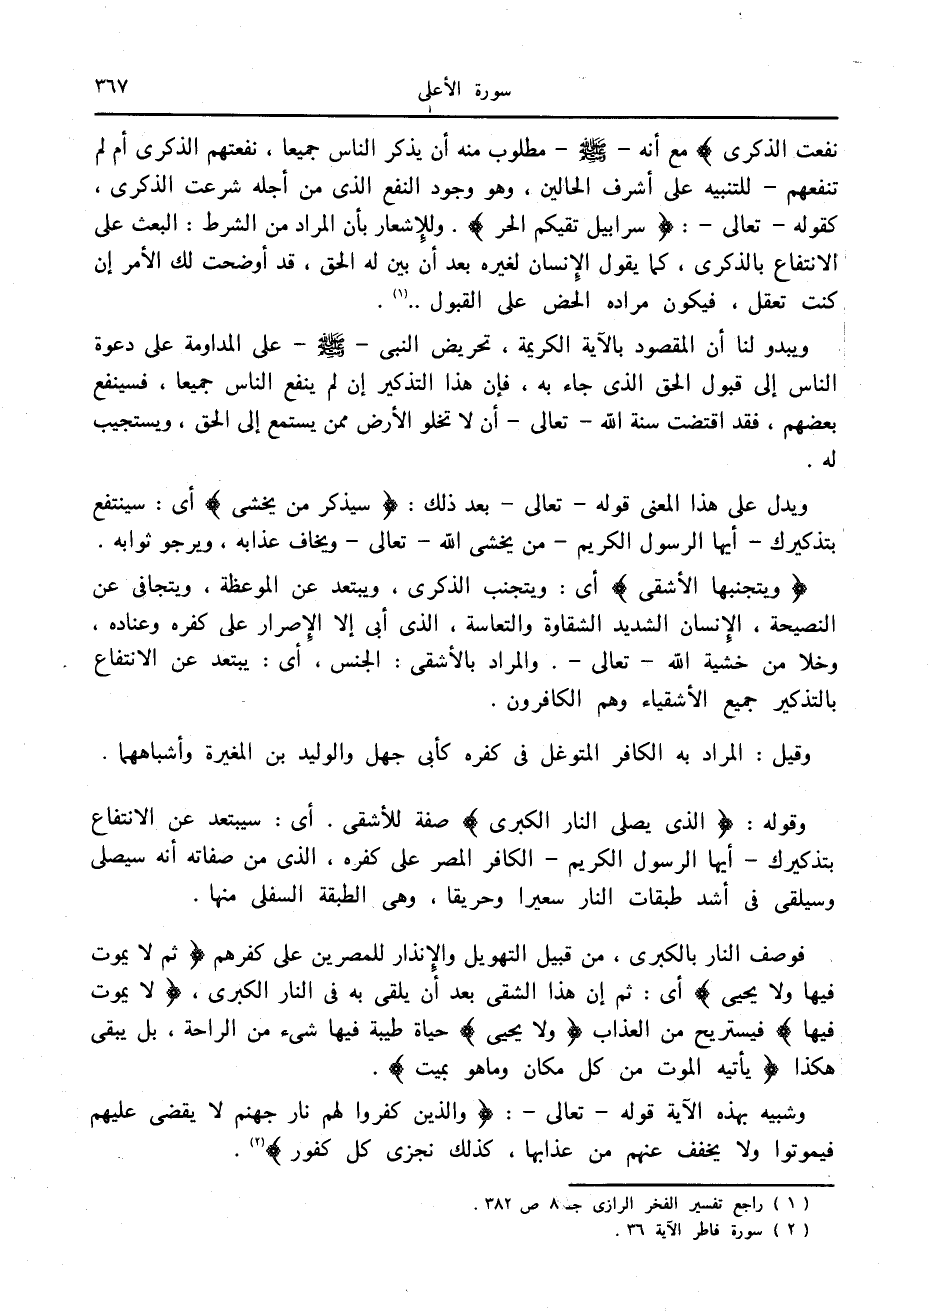 سورة الأعلى ٣٦٧
نفعت الذكرى ﴾ مع أنه – ﷺ – مطلوب منه أن يذكر الناس جميعا ، نفعتهم الذكرى أم لم
تنفعهم – للتنبيه على أشرف الحالين ، وهو وجود النفع الذى من أجله شرعت الذكرى ،
كقوله – تعالى – : ﴿ سرابيل تقيكم الحر ﴾ . وللإشعار بأن المراد من الشرط : البعث على
الانتفاع بالذكرى ، كما يقول الإنسان لغيره بعد أن بين له الحق ، قد أوضحت لك الأمر إن
كنت تعقل ، فيكون مراده الحض على القبول ..(١) .
ويبدو لنا أن المقصود بالآية الكريمة ، تحريض النبى – ﷺ – على المداومة على دعوة
الناس إلى قبول الحق الذى جاء به ، فإن هذا التذكير إن لم ينفع الناس جميعا ، فسينفع
بعضهم ، فقد اقتضت سنة الله – تعالى – أن لا تخلو الأرض ممن يستمع إلى الحق ، ويستجيب
له .
ويدل على هذا المعنى قوله – تعالى – بعد ذلك : ﴿ سيذكر من يخشى ﴾ أى : سينتفع
بتذكيرك – أيها الرسول الكريم – من يخشى الله – تعالى – ويخاف عذابه ، ويرجو ثوابه .
﴿ ويتجنبها الأشقى ﴾ أى : ويتجنب الذكرى ، ويبتعد عن الموعظة ، ويتجافى عن
النصيحة ، الإنسان الشديد الشقاوة والتعاسة ، الذى أبى إلا الإصرار على كفره وعناده ،
وخلا من خشية الله – تعالى – . والمراد بالأشقى : الجنس ، أى : يبتعد عن الانتفاع
بالتذكير جميع الأشقياء وهم الكافرون .
وقيل : المراد به الكافر المتوغل فى كفره كأبى جهل والوليد بن المغيرة وأشباههما .
وقوله : ﴿ الذى يصلى النار الكبرى ﴾ صفة للأشقى . أى : سيبتعد عن الانتفاع
بتذكيرك – أيها الرسول الكريم – الكافر المصر على كفره ، الذى من صفاته أنه سيصلى
وسيلقى فى أشد طبقات النار سعيرا وحريقا ، وهى الطبقة السفلى منها .
فوصف النار بالكبرى ، من قبيل التهويل والإنذار للمصرين على كفرهم ﴿ ثم لا يموت
فيها ولا يحيى ﴾ أى : ثم إن هذا الشقى بعد أن يلقى به فى النار الكبرى ، ﴿ لا يموت
فيها ﴾ فيستريح من العذاب ﴿ ولا يحيى ﴾ حياة طيبة فيها شىء من الراحة ، بل يبقى
هكذا ﴿ يأتيه الموت من كل مكان وماهو بميت ﴾ .
وشبيه بهذه الآية قوله – تعالى – : ﴿ والذين كفروا لهم نار جهنم لا يقضى عليهم
فيموتوا ولا يخفف عنهم من عذابها ، كذلك نجزى كل كفور ﴾(٢) .
( ١ ) راجع تفسير الفخر الرازى جـ ٨ ص ٣٨٢ .
( ٢ ) سورة فاطر الآية ٣٦ .